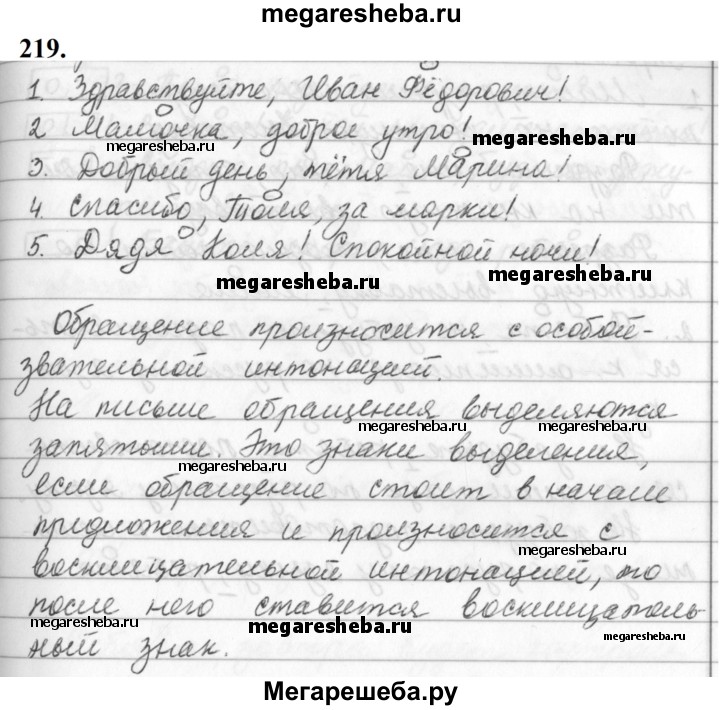 megaresheba.ru
219.
1. Здравствуйте, Иван Фёдорович!
2 Мамочка, доброе утро!
megaresheba.ru
3. Добрый день, тётя Марина!
4. Спасибо, Толя, за марки!
5. Дядя Коля! Спокойной ночи!
megaresheba.ru
megaresheba.ru
Обращение произносится с особой-
звательной интонацией.
На письме обращения выделяются
megaresheba.ru
megaresheba.ru
запятыми. Это знаки выделения,
megaresheba.ru
если обращение стоит в начале
предложения и произносится с
megaresheba.ru
восклицательной интонацией, то
после него ставится восклицатель-
megaresheba.ru
megaresheba.ru
megaresheba.ru
ный знак.
Мегарешеба.ру